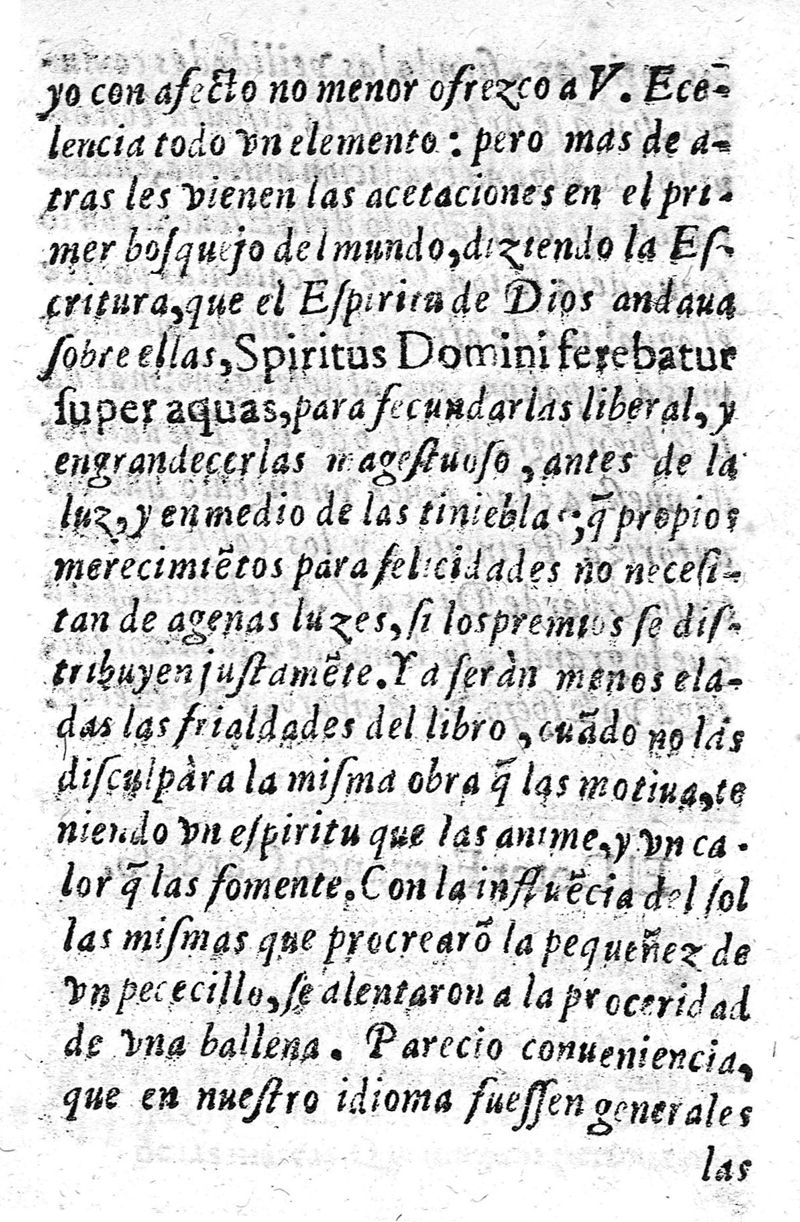 yo con afecto no menor ofrezco a V. Ēce-
lencia todo vn elemento: pero mas de a-
tras les vienen las acetaciones en el pri-
mer boſquejo del mundo, diziendo la Eſ-
critura, que el Eſpiritu de Dios andaua
ſobre ellas, Spiritus Domini ferebatur
ſuper aquas, para fecundarlas liberal, y
engrandecerlas mageſtuoſo, antes de la
luz, y en medio de las tinieblas; q̃ propios
merecimiẽtos para felicidades no neceſi-
tan de agenas luzes, ſi los premios ſe diſ-
tribuyen juſtamẽte. Ya ſeràn menos ela-
das las frialdades del libro, cuãdo no las
diſculpàra la miſma obra q̃ las motiua, te
niendo vn eſpiritu que las anime, y vn ca-
lor q̃ las fomente. Con la influẽcia del ſol
las miſmas que procrearõ la pequeñez de
vn pececillo, ſe alentaron a la proceridad
de vna ballena. Parecio conueniencia,
que en nueſtro idioma fueſſen generales
las